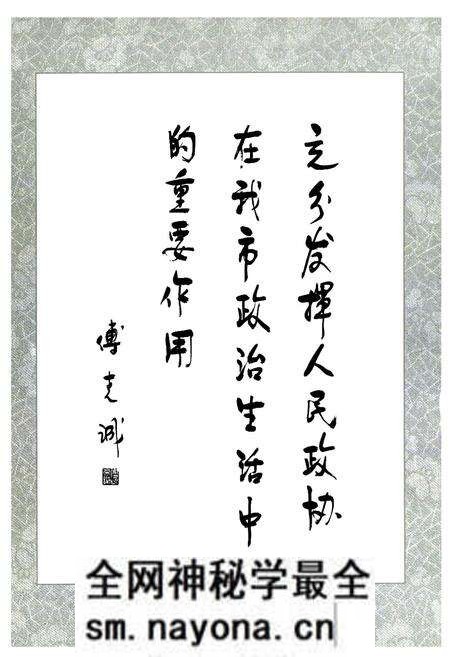 充分发揮人民政协
在我市政治生活中
的重要作用
傅克诚
全网神秘学最全
sm.nayona.cn